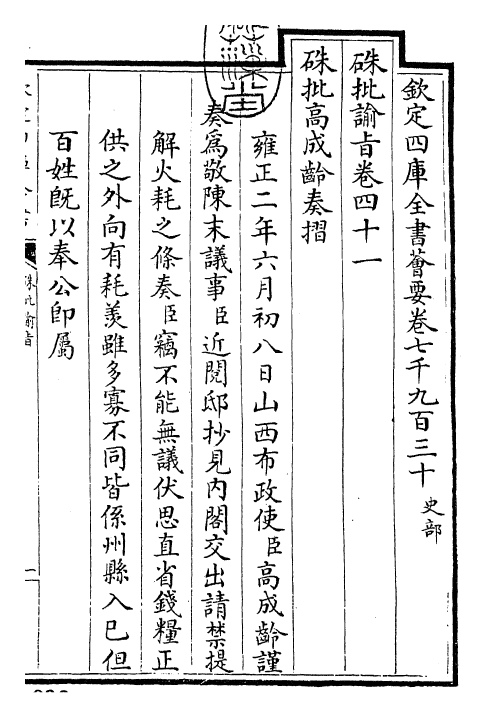 欽定四庫全書薈要卷七千九百三十 史部
硃批諭旨卷四十一
硃批高成齡奏摺
雍正二年六月初八日山西布政使臣高成齡謹
奏為敬陳末議事臣近閱邸抄見內閣交出請禁提
解火耗之條奏臣竊不能無議伏思直省錢糧正
供之外向有耗羡雖多寡不同皆係州縣入已但
百姓旣以奉公即屬
硃批諭旨
一